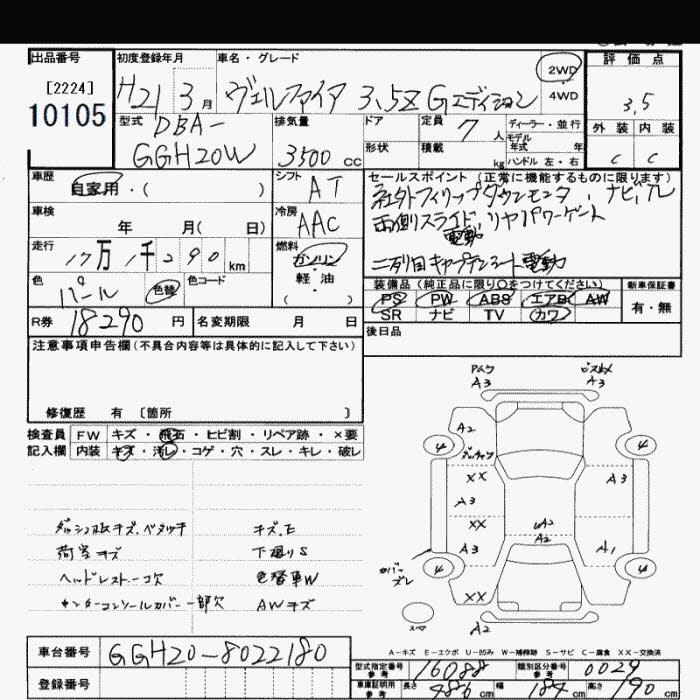 出品番号
[2224]
10105
初度登録年月
H21 3月
車名・グレード
ヴェルファイア 3.5Z Gエディション
2WD
4WD
評価点
3.5
外装 内装
C C
型式
DBA-
GGH20W
排気量
3500 cc
ドア
形状
定員 7 人
積載 kg
ディーラー・並行
モデル年式 年
ハンドル 左・右
車歴
自家用・( )
シフト
AT
セールスポイント(正常に機能するものに限ります)
社外フィリップダウンモニタ、ナビ
両側スライド、リヤパワーゲート
電動
二列目キャプテンシート電動
車検
年 月( 日)
冷房
AAC
走行
km
燃料
ガソリン
軽・油
( )
色
パール
色替
色コード
装備品(純正品に限り○をつけてください)
PS PW ABS エアB AW
SR ナビ TV カワ
新車保証書
有・無
R券 18290 円
名変期限 月 日
後日品
注意事項申告欄(不具合内容等は具体的に記入して下さい)
修復歴 有 〔箇所 〕
検査員
記入欄
FW キズ・飛石・ヒビ割・リペア跡・×要
内装 キズ・汚レ・コゲ・穴・スレ・キレ・破レ
ダッシュ板キズ、ベタツキ
荷室キズ
ヘッドレスト一コ欠
センターコンソールカバー一部欠
キズ、E
下廻りS
色替車W
AWキズ
A3
A3
A2
4
4
XX
A3
A3
XX
UA2
A2
A3
A1
カバー
ズレ
4
4
XX
スペア
A2
A-キズ E-エクボ U-凹み W-補修跡 S-サビ C-腐食 XX-交換済
車台番号
GGH20-8022180
登録番号
型式指定番号
参考
16088
類別区分番号
参考
0029
車庫証明用
参考
長さ 486 cm
幅 184 cm
高さ 190 cm